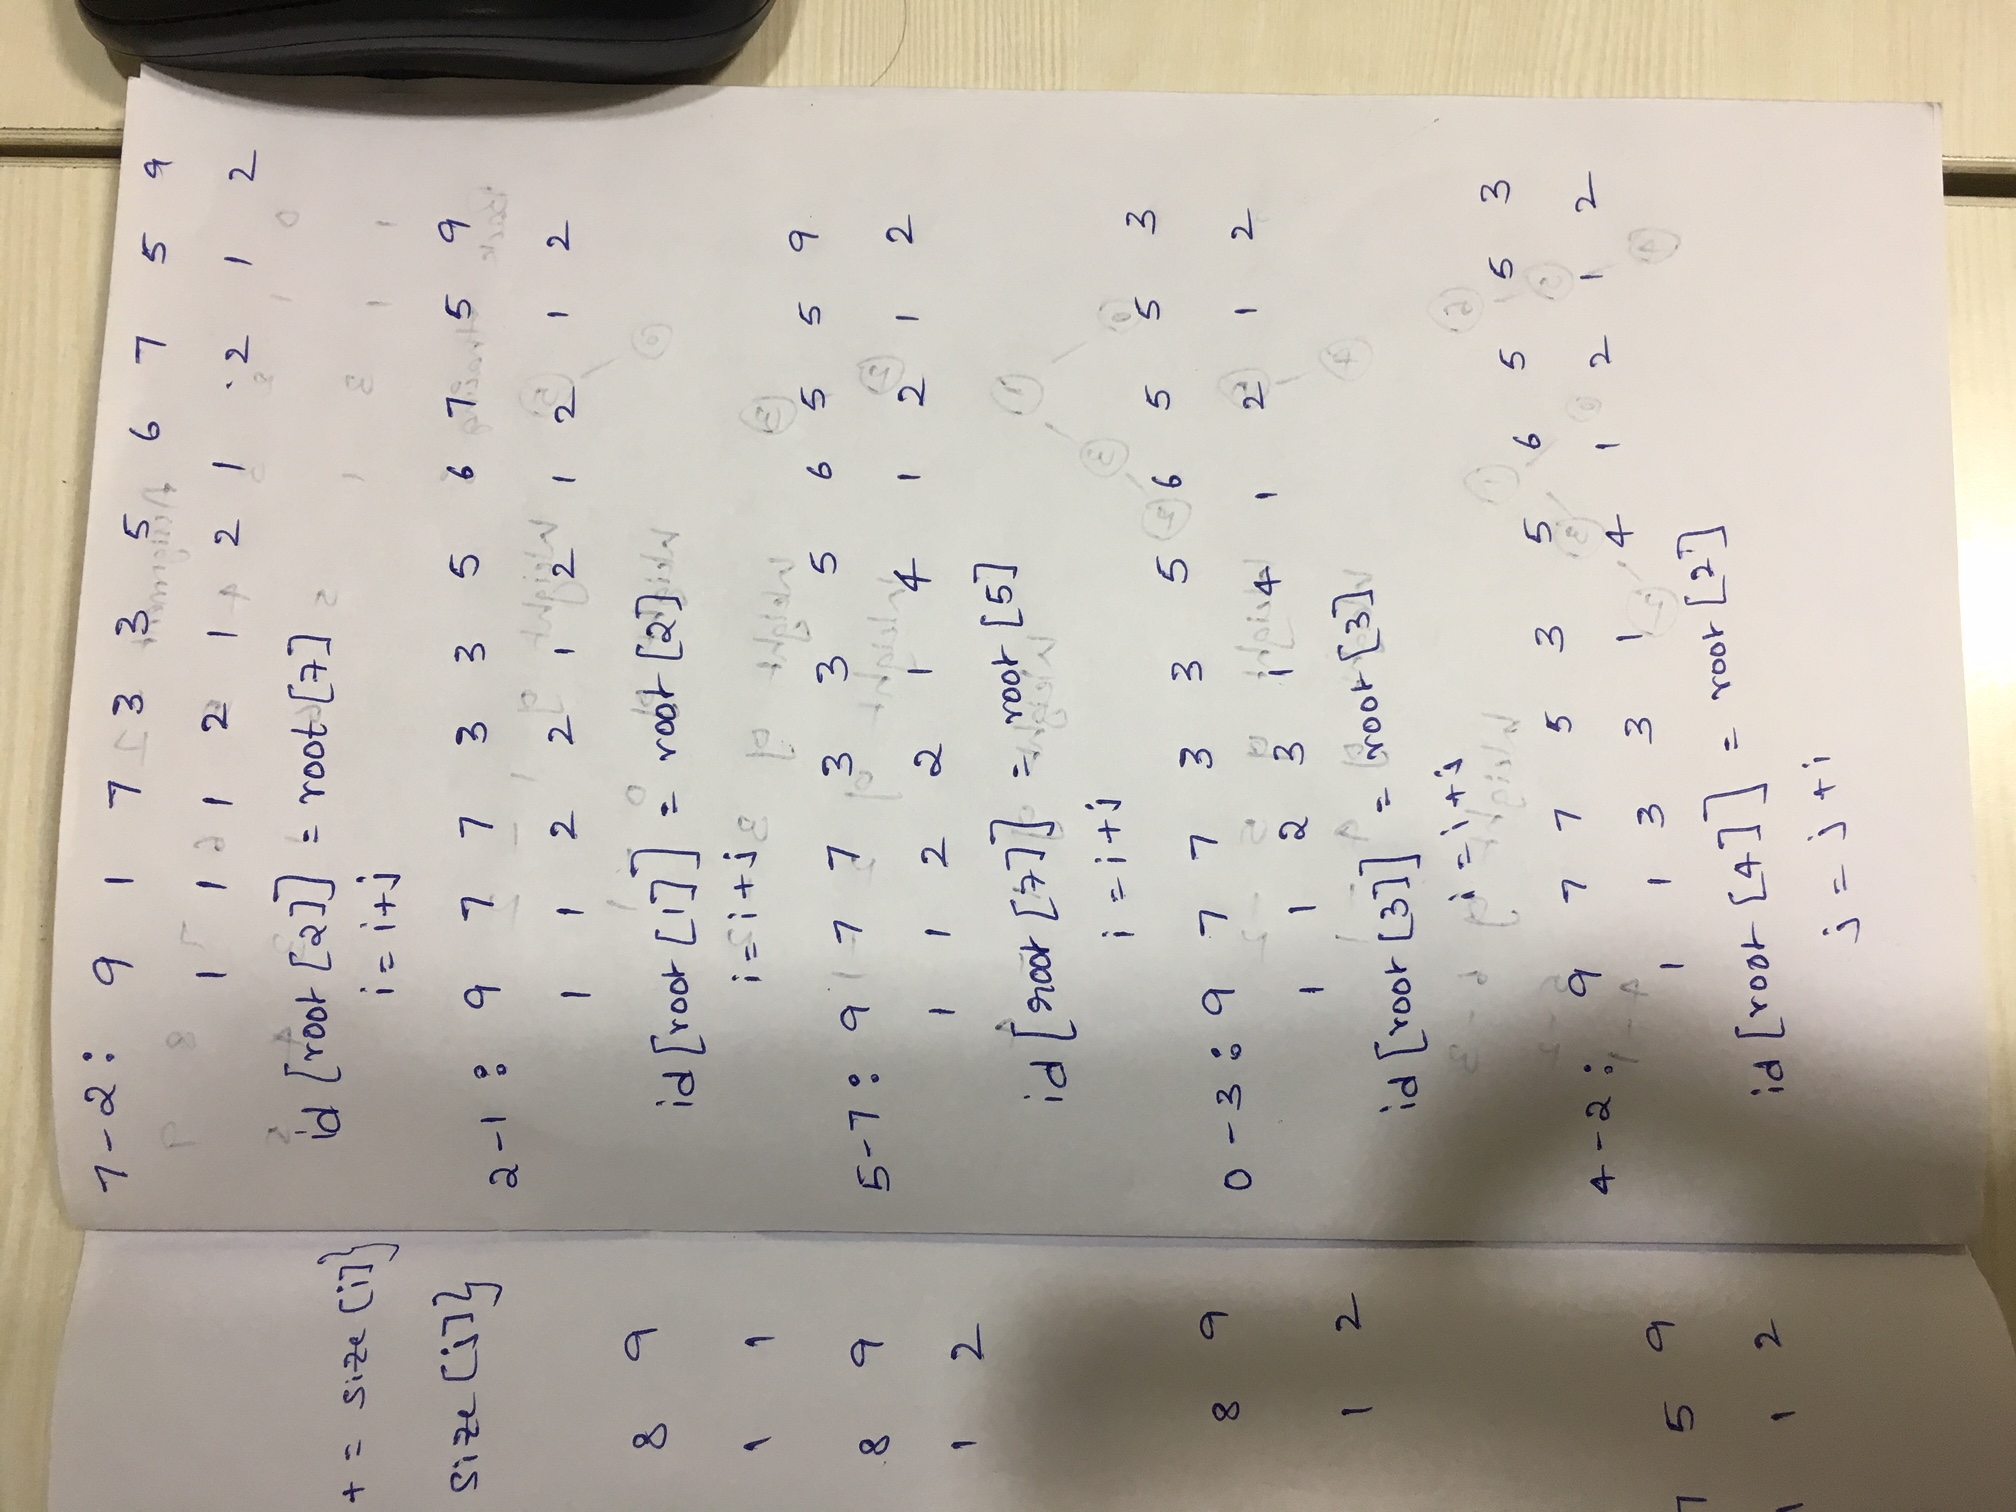 + = size [i]}
size [j]}
8 9
1 1
8 9
1 2
8 9
1 2
7 5 9
1 1 2
7-2: 9 1 7 3 3 5 6 7 5 9
1 1 1 2 1 2 1 2 1 2
id [root [2]] = root [7]
i = i+j
2-1: 9 7 7 3 3 5 6 7 5 9
1 1 2 2 1 2 1 2 1 2
id [root [1]] = root [2]
i = i+j
5-7: 9 7 7 3 3 5 6 5 5 9
1 1 2 2 1 4 1 2 1 2
id [root [7]] = root [5]
i = i+j
0-3: 9 7 7 3 3 5 6 5 5 3
1 1 2 3 1 4 1 2 1 2
id [root [3]] = root [3]
i = i+j
4-2: 9 7 7 5 3 5 6 5 5 3
1 1 3 3 1 4 1 2 1 2
id [root [4]] = root [2]
j = j+i